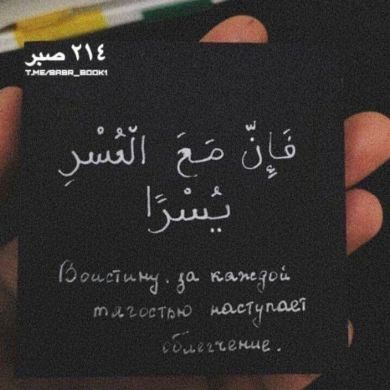 ٢١٤ صبر
T.ME/SABR_BOOK1
فَإِنّ مَعَ الْعُسْرِ
يُسْرًا
Воистину, за каждой
тягостью наступает
облегчение.